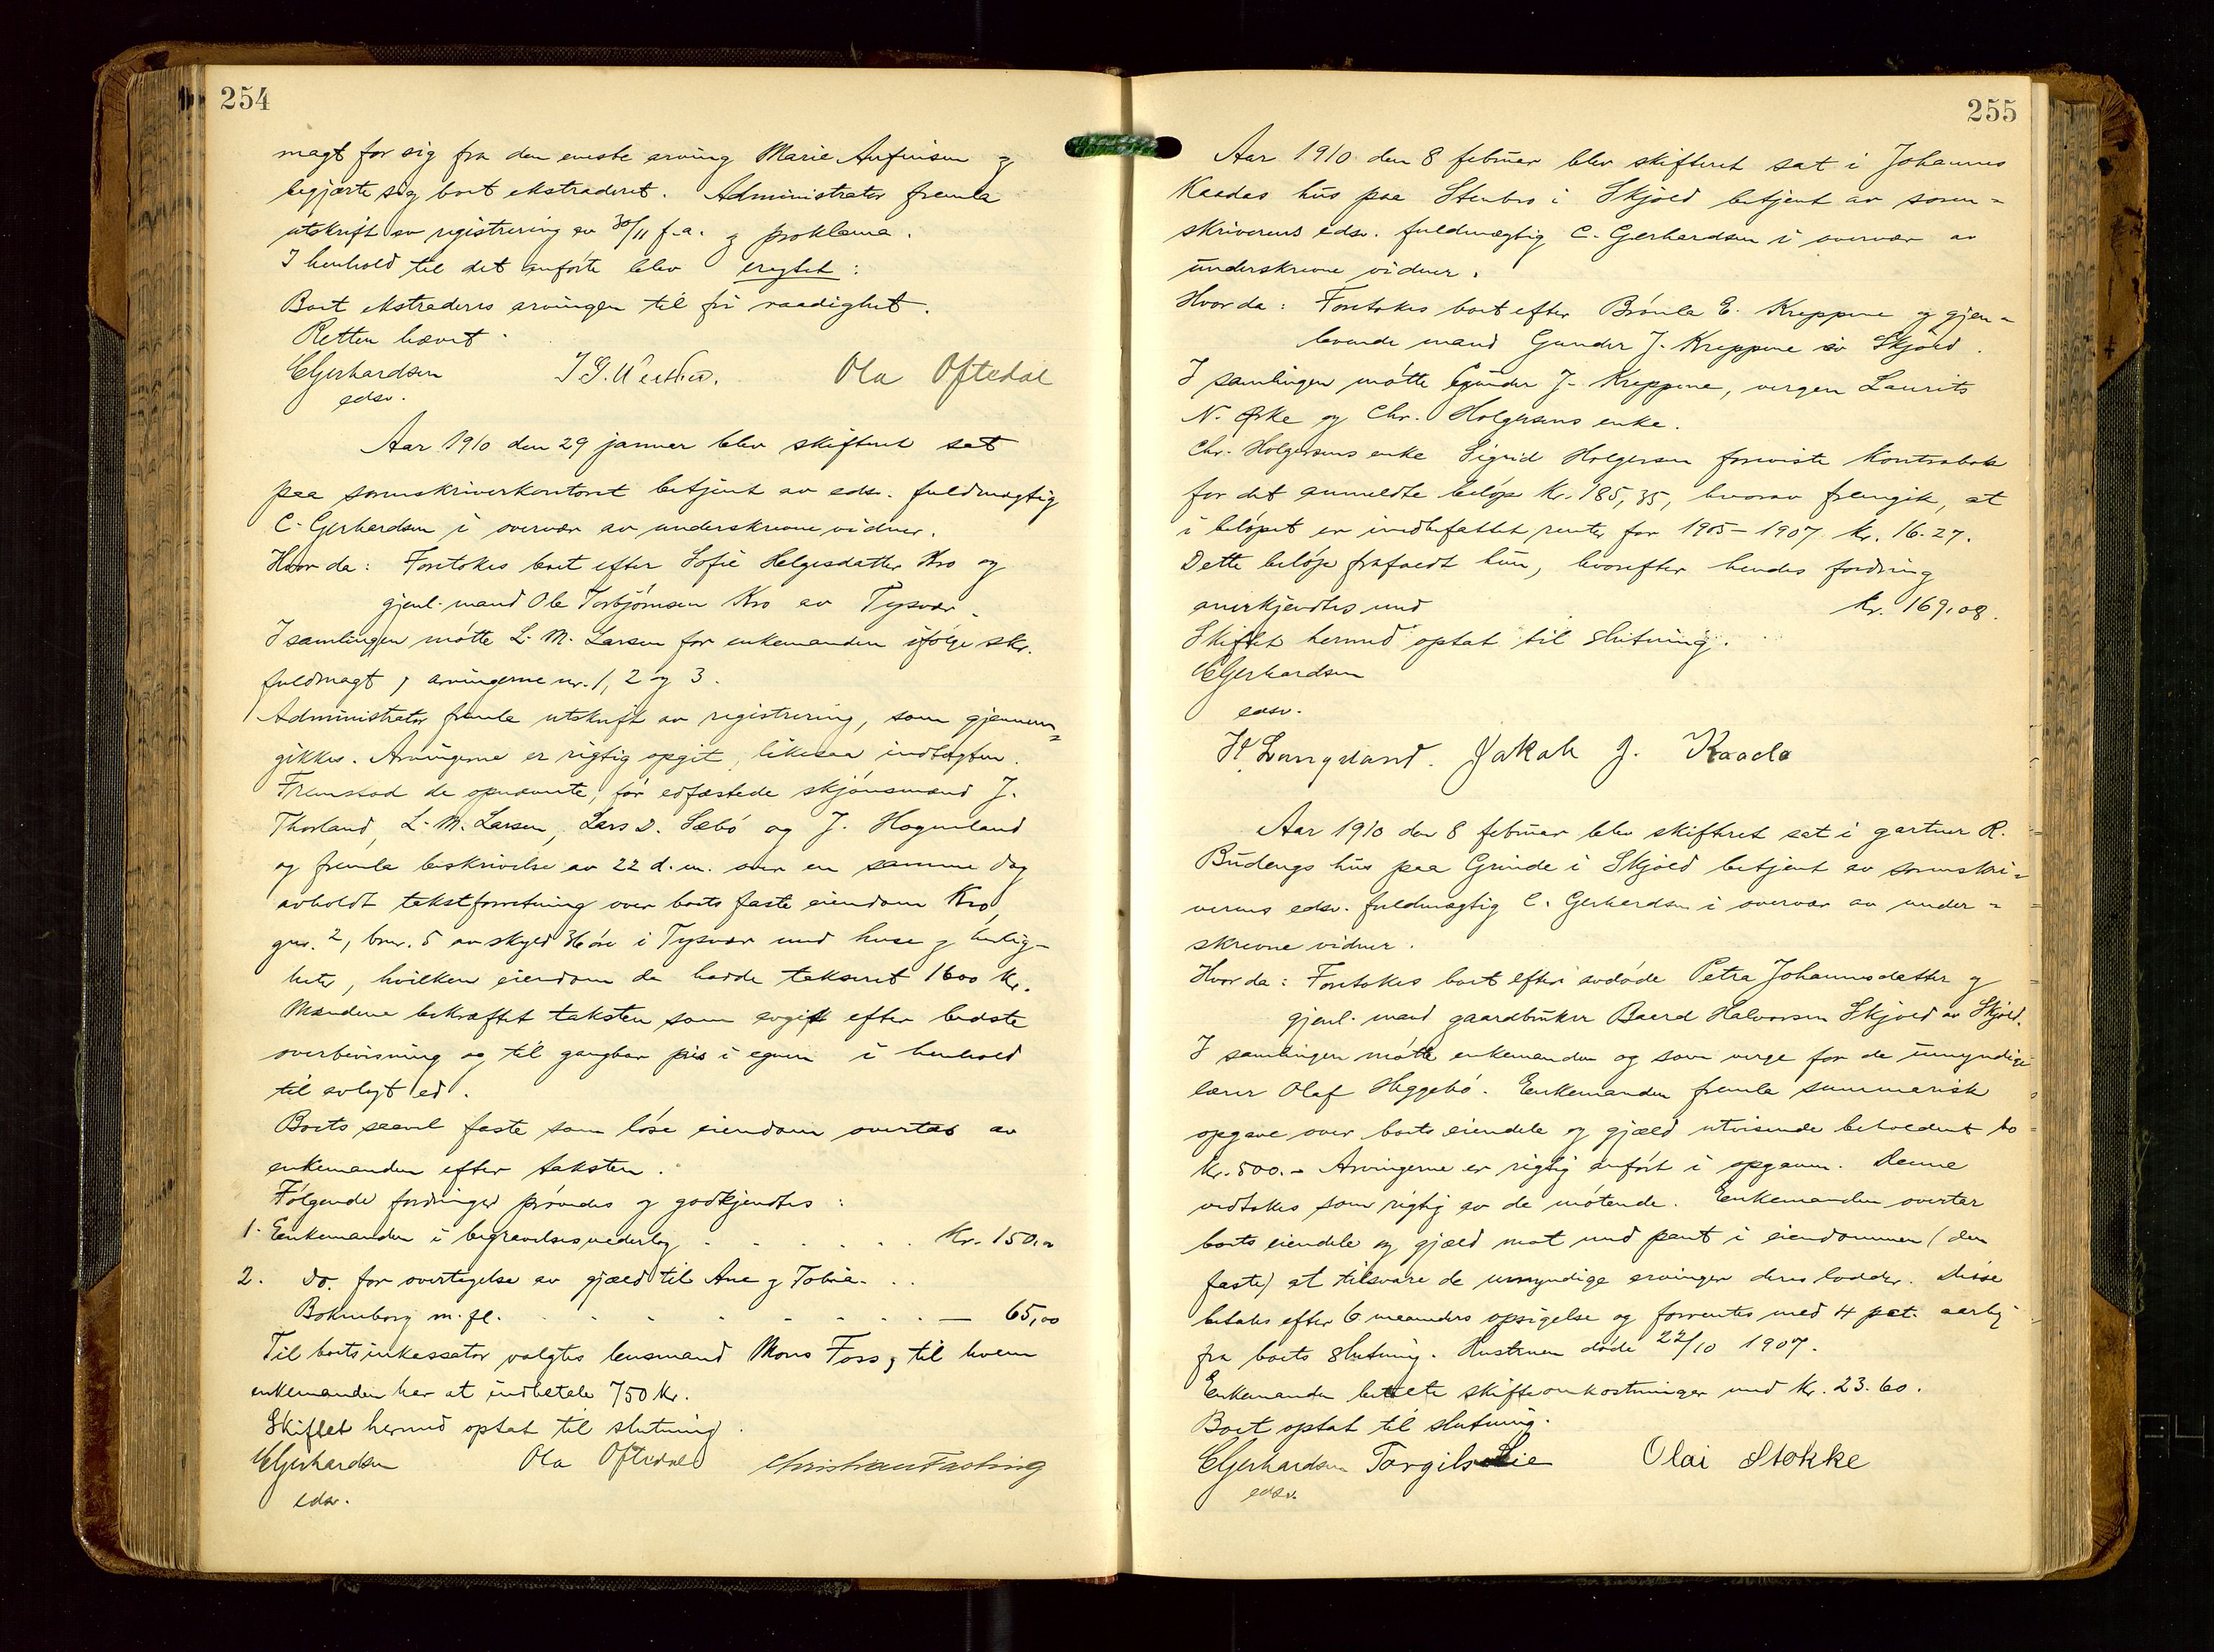 254
magt for sig fra den eneste arving Marie Anfinsen og
begjærte sig boet ekstraderet. Administrator fremla
utskrift av registrering av 30/11 f.a. og proklama.
I henhold til det anførte blev eragtet:
Boet ekstraderes arvingen til fri raadighet.
Retten hævet.
CGerhardsen
edsv.
Ola Oftedal
Aar 1910 den 29 januar blev skifteret sat
paa sorenskriverkontoret betjent av edsv. fuldmægtig
C. Gerhardsen i overvær av underskrevne vidner.
Hvor da: Foretokes boet efter Sofie Helgesdatter Kro og
gjenl. mand Ole Torbjørnsen Kro av Tysvær.
I samlingen møtte L. M. Larsen for enkemanden ifølge skr.
fuldmagt, arvingerne nr. 1, 2 og 3.
Administrator fremla utskrift av registrering, som gjennem=
gikkes. Arvingerne er rigtig opgit, likesaa indtægten.
Fremstod de opnævnte, før edfæstede skjønsmænd J.
Thorland, L. M. Larsen, Lars D. Sæbø og J. Hogundland
og fremla beskrivelse av 22 d. m. over en samme dag
avholdt takstforretning over boets faste eiendom Kro,
gnr. 2, bnr. 5 av skyld 36 øre i Tysvær med huse og herlig-
heter, hvilken eiendom de hadde takseret 1600 kr.
Mændene bekræftet taksten som avgit efter bedste
overbevisning og til gangbar pris i egnen i henhold
til avlagt ed.
Boets saavel faste som løse eiendom overtas av
enkemanden efter taksten.
Følgende fordringer prøvedes og godkjendtes:
1. Enkemanden i begravelsesvederlag . . . . . . Kr. 150,00
2. Do. for overtagelse av gjæld til Ane og Tobia . .
Bokneberg m. fl. . . . . . . . — 65,00
Til boets inkassator valgtes lensmand Mons Foss, til hvem
enkemanden har at indbetale 750 kr.
Skiftet hermed optat til slutning.
CGerhardsen
edsv.
Ola Oftedal
Christian Fasting
255
Aar 1910 den 8 februar blev skifteret sat i Johannes
Kaadas hus paa Stenbro i Skjold betjent av soren=
skriverens edsv. fuldmægtig C. Gerhardsen i overvær av
underskrevne vidner.
Hvor da: Foretokes boet efter Brønla E. Kreppene og gjen=
levende mand Gunder J. Kreppene av Skjold.
I samlingen møtte Gunder J. Kreppene, vergen Laurits
N. Øke og Chr. Holgersens enke.
Chr. Holgersens enke Sigrid Holgersen foreviste kontrabok
for det anmeldte beløp kr. 185,35, hvorav fremgik, at
i beløpet er indbefattet renter for 1905-1907 kr. 16.27.
Dette beløp frafaldt hun, hvorefter hendes fordring
anerkjendtes med kr. 169,08.
Skiftet hermed optat til slutning.
CGerhardsen
edsv.
H. Langeland. Jakob J. Kaada
Aar 1910 den 8 februar blev skifteret sat i gartner R.
Budengs hus paa Grinde i Skjold betjent av sorenskri=
verens edsv. fuldmægtig C. Gerhardsen i overvær av under=
skrevne vidner.
Hvor da: Foretokes boet efter avdøde Petra Johannesdatter og
gjenl. mand gaardbruker Baard Halvorsen Skjold av Skjold.
I samlingen møtte enkemanden og som verge for de umyndige
lærer Olaf Heggebø. Enkemanden fremla summarisk
opgave over boets eiendele og gjæld utvisende beholdent bo
kr. 500.- Arvingerne er rigtig anført i opgaven. Denne
vedtokes som rigtig av de møtende. Enkemanden overtar
boets eiendele og gjæld mot med pant i eiendommen (den
faste) at tilsvare de umyndige arvinger deres lodder. Disse
betales efter 6 maaneders opsigelse og forrentes med 4 pct. aarlig
fra boets slutning. Hustruen døde 22/10 1907.
Enkemanden betalte skifteomkostninger med kr. 23.60.
Boet optat til slutning.
CGerhardsen
edsv.
Torgils Lie
Olai Stokke